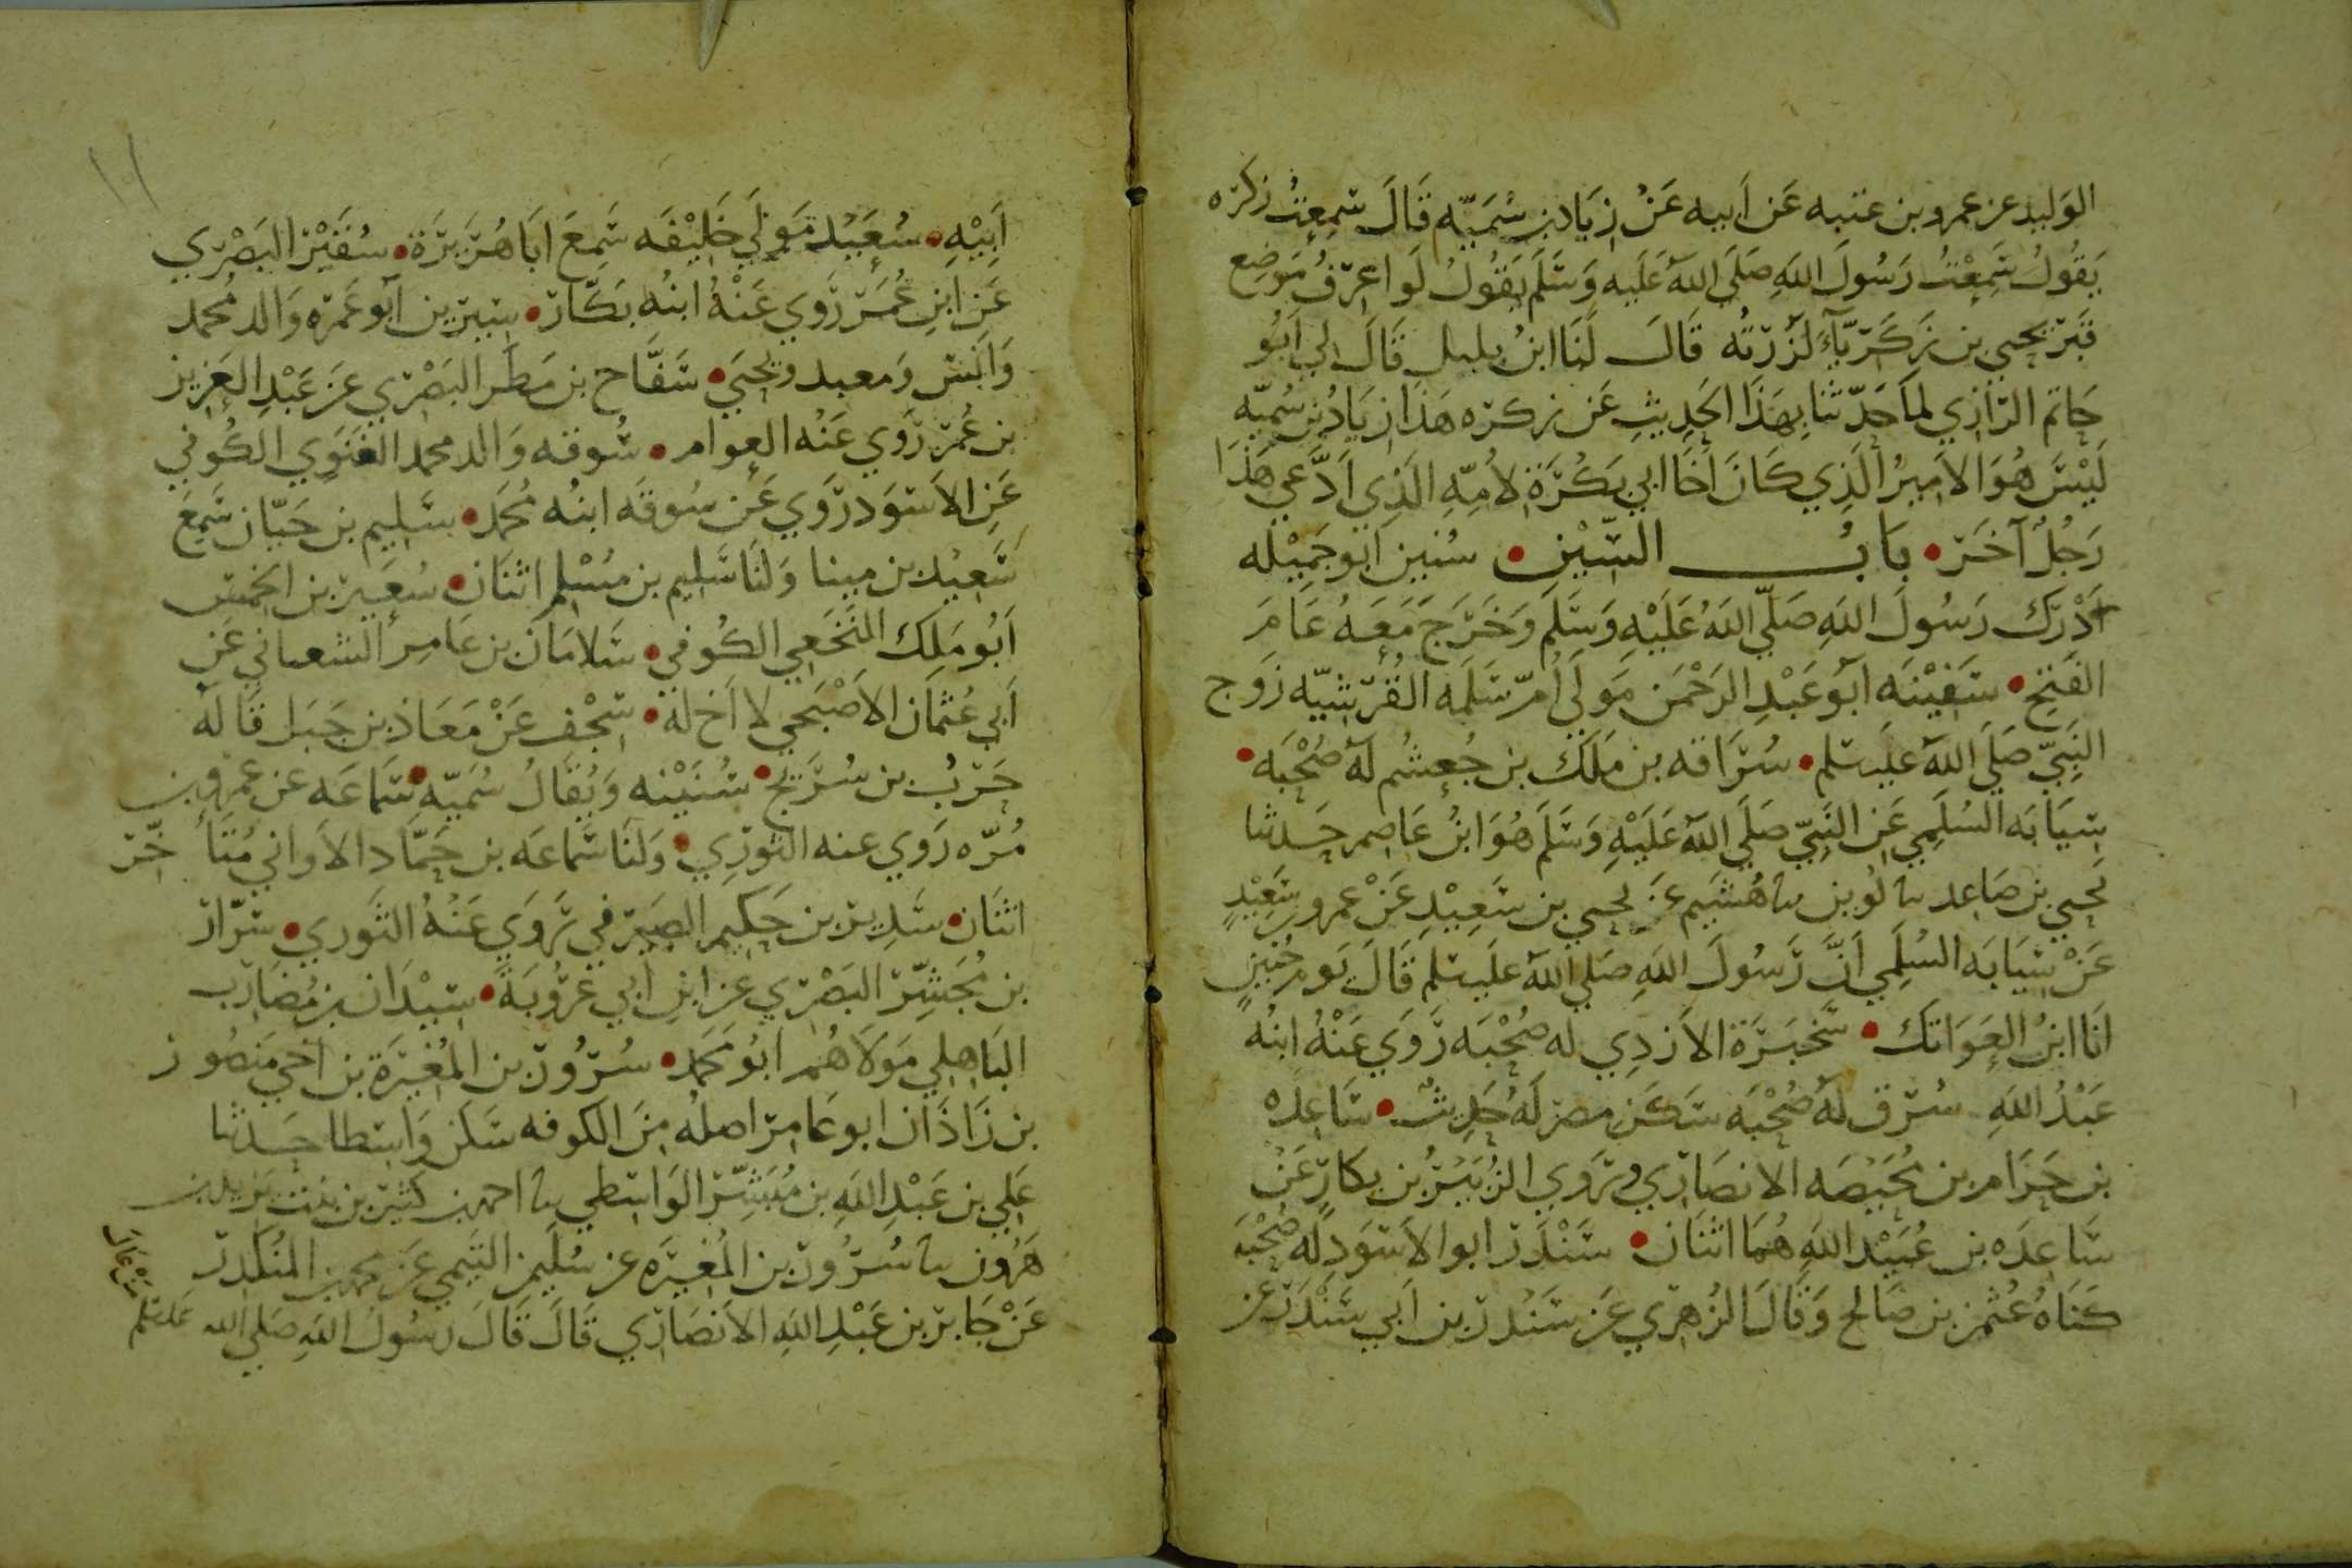 الوليد عن عمرو بن عتبه عَن اَبيه عَنْ زيَاد بن سُمَيّه قَالَ سَمِعتُ زكره
يَقُولُ سَمِعْتُ رَسُولَ اللهِ صَلَى اللهُ عَلَيه وَسَلَم يَقُولُ لَو اعرفُ مَوضِع
قَبر يحيى بن زَكَريّآءَ لَزُرتُه قَالَ لَنَا ابنُ بلبل قَالَ لي اَبُو
حَاتم الرّازي لما حَدّثنا بهَذَا الحَدِيثِ عَن زكره هَذَا زيَادُ بن سُميّه
لَيْسَ هُوَ الاَمِيرُ الَذِي كَانَ أخَا ابي بَكْرَةَ لاُمِّهِ الَذِي اَدَّعي هَذَا
رَجُلٌ آخَر • بَابُ السّيْن • سُنين اَبُو جَمِيْله
اَدْرَك رَسُولَ اللهِ صَلّى اللهُ عَلَيْهِ وَسَلَم وَخَرَجَ مَعَهُ عَامَ
الفَتحِ • سَفِيْنَه اَبو عَبْدِ الرَحْمَن مَولَى اُمّ سَلَمَه القُرَشيّه زَوج
النَبِيّ صَلَى اللهُ عليسلم • سُرَاقه بن مَلَك بن جُعشُم لَهُ صُحْبَه •
سِيَابَه السُلَمِي عَن النَبِيّ صَلَى اللهُ عَلَيْهِ وَسَلَم هُوَ ابنُ عَاصِم حَدثنا
يَحيي بن صَاعد نا لُوين نا هُشَيم عَن يحيي بن سَعِيْدِ عَنْ عمرو بن سَعِيْدٍ
عَنْ سِيَابَه السُلَمِي اَنَّ رَسُولَ اللهِ صَلى اللهُ عليسلم قَالَ يَوم حُنَينٍ
اَنَا ابنُ العَوَاتك • سَخبَرَة الاَزدِي له صُحْبَه رَوَي عَنْهُ ابنُه
عَبْدُ اللهِ سُرَق لَهُ صُحْبَه سَكَن مصر لَهُ حَدِيثٌ • سَاعِده
بن حَرَام بن مُحَيّصَه الانصَاري وَرَوَي الزُبَيْرُ بن بكارٍ عَنْ
سَاعدَه بن عُبَيْد اللهِ هُمَا اثنَان • سَنْدَر ابو الاَسوَدِ لَه صُحْبَه
كَنَاهُ عُثمن بن صَالح وَقَالَ الزُهري عَن سَنْدر بن اَبي سَنْدَر عن
١١
اَبِيْهِ • سُعَيْد مَولَى خَلِيْفَه سَمِعَ اَبَا هُرَيرَة • سُفَيْر البَصْري
عَن ابنِ عُمَر رَوي عَنْهُ ابنُه بَكَّار • سِيرين اَبو عَمرَه وَالد مُحمد
وَاَنس وَمعبد ويحيَى • سَفَّاح بن مَطَر البَصْري عَن عَبْدِ العَزيز
بن عُمَر رَوي عَنْه العوام • سُوقه وَالد محمد الغَنَوِي الكُوفي
عَن الاَسوَد رَوَي عَن سُوقَه ابنُه مُحَمَد • سَليم بن حَيّان سَمِعَ
سَعِيْد بن مينا وَلَنَا سَليم بن مسْلم اثنَان • سُعَير بن الخمس
اَبُو مَلِك النَخَعي الكُوفي • سَلامَان بن عَامِر الشعباني عَن
اَبي عُثمَان الاَصْبَحي لا اَخ لهُ • سَجْف عَنْ مَعَاذ بن جَبَل قَالهُ
حَرْبُ بن سُرَيج • سُنَيْنه وَيُقَالُ سُمَيّه • سَمَاعَه عن عمرو بن
مُرّه رَوي عنه الثوري • وَلَنَا سَمَاعَه بن حَمّاد الاَواني مُتَأخّر
اثنَان • سَدِير بن حَكِيم الصَيرفي رَوَي عَنْهُ الثَوري • سَرّار
بن مُجَشِّر البَصْري عن ابنِ اَبي عَرُوبَةَ • سِيْدَان بن مُضَارب
البَاهلي مَولاَهُم ابُو مُحَمَد • سُرُور بن المُغِيْرَة بن اَخي مَنصُور
بن زَاذَان ابو عَامِر اصلُه مِنَ الكوفه سَكن وَاسطا حَدثنا
عَلي بن عَبْدِ اللهِ بن مُبَشِّر الوَاسطي نا احمد بن كثير بن بنت يزيد بن
هَرُون نا سُرُور بن المُغيرَه عن سُلَيمن التَيمي عَن محمد بن المُنكَدر
عَنْ جَابر بن عَبْدِ اللهِ الاَنصَاري قَالَ قَالَ رَسُولُ اللهِ صَلى الله عليسلم